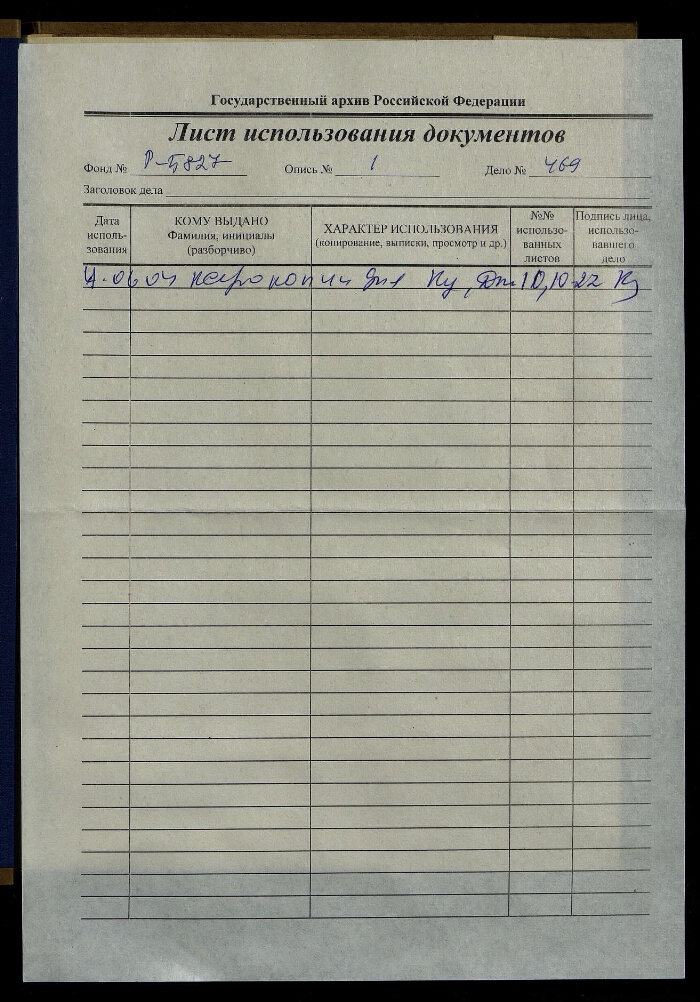 Государственный архив Российской Федерации
Лист использования документов
Фонд № Р-5827 Опись № 1 Дело № 469
Заголовок дела
Дата исполь- зования
КОМУ ВЫДАНО Фамилия, инициалы (разборчиво)
ХАРАКТЕР ИСПОЛЬЗОВАНИЯ (копирование, выписки, просмотр и др.)
№№ использо- ванных листов
Подпись лица, использо- вавшего дело
ксерокопии для 10, 10-22